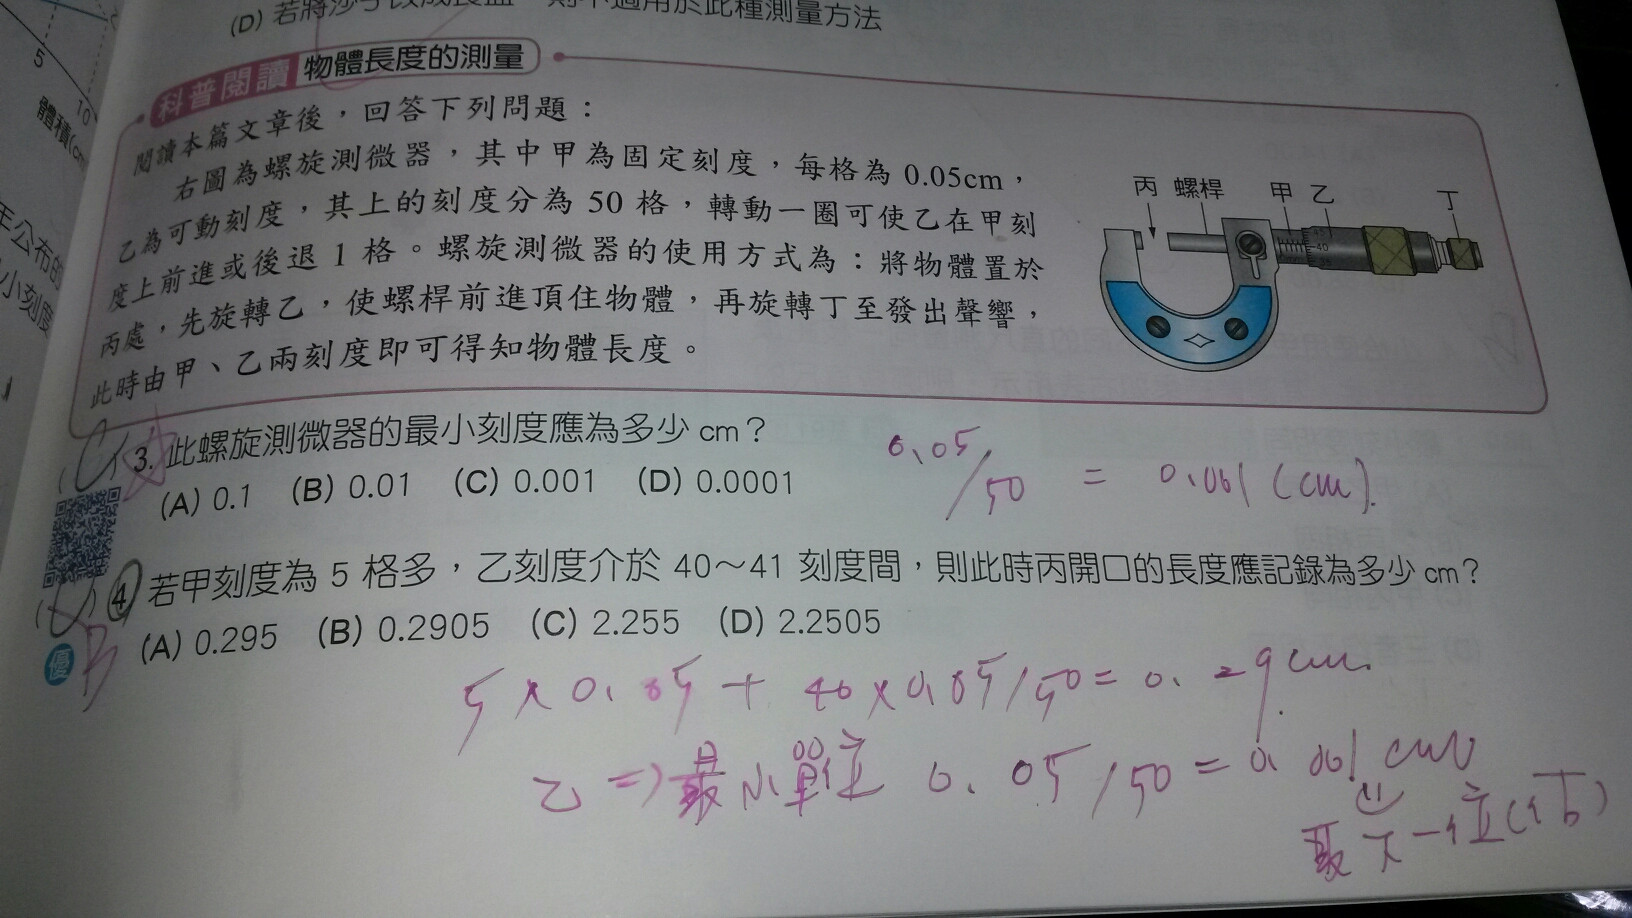 (D) 若將沙子改成食鹽，則不適用於此種測量方法
5
10
體積(cm
年公布的
小刻度
科普閱讀 物體長度的測量
閱讀本篇文章後，回答下列問題：
右圖為螺旋測微器，其中甲為固定刻度，每格為 0.05cm，
乙為可動刻度，其上的刻度分為 50 格，轉動一圈可使乙在甲刻
度上前進或後退 1 格。螺旋測微器的使用方式為：將物體置於
丙處，先旋轉乙，使螺桿前進頂住物體，再旋轉丁至發出聲響，
此時由甲、乙兩刻度即可得知物體長度。
丙 螺桿 甲 乙 丁
40
(C) 3. 此螺旋測微器的最小刻度應為多少 cm？
(A) 0.1 (B) 0.01 (C) 0.001 (D) 0.0001
0.05/50 = 0.001 (cm).
4. 若甲刻度為 5 格多，乙刻度介於 40～41 刻度間，則此時丙開口的長度應記錄為多少 cm？
優 B (A) 0.295 (B) 0.2905 (C) 2.255 (D) 2.2505
5 × 0.05 + 40 × 0.05/50 = 0.29cm.
乙 => 最小單位 0.05/50 = 0.001 cm
最下一位(估)